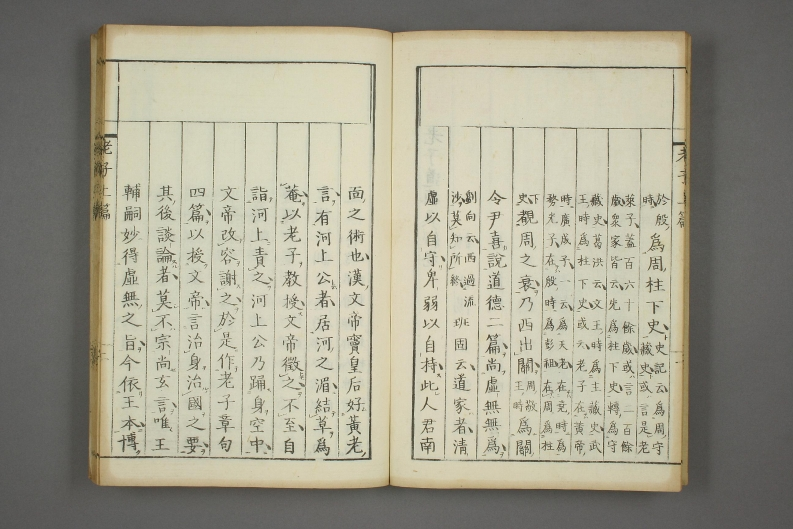 於殷時爲周柱下史史記云爲周守藏史或言是老
萊子蓋百六十餘歲或言二百餘
歲衆家皆云先爲柱下史轉爲守
藏史葛洪云文王時爲主藏史武
王時爲柱下史或云老子在黃帝
時廣成子一云爲天老在堯時爲
務光子在殷時爲彭祖在周爲柱
下史覩周之衰乃西出關周敬王時爲關
令尹喜說道德二篇尚虛無無爲
劉向云西過流沙莫知所終班固云道家者清
虛以自守卑弱以自持此人君南
面之術也漢文帝竇皇后好黃老
言有河上公者居河之湄結草爲
菴以老子教授文帝徵之不至自
詣河上責之河上公乃踊身空中
文帝改容謝之於是作老子章句
四篇以授文帝言治身治國之要
其後談論者莫不宗尚玄言唯王
輔嗣妙得虛無之旨今依王本博
老子上篇